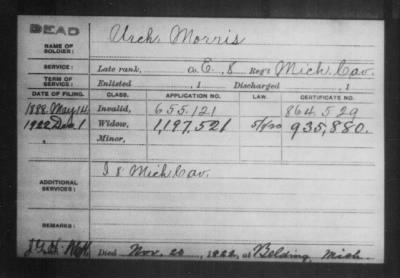 DEAD
NAME OF SOLDIER: Urch, Morris
SERVICE: Late rank, Co. E, 8 Reg't Mich. Cav.
TERM OF SERVICE: Enlisted , 1 Discharged , 1
DATE OF FILING. CLASS. APPLICATION NO. LAW. CERTIFICATE NO.
1888 May 14 Invalid, 655,121 864,529
1922 Dec 1 Widow, 1,197,521 935,880.
Minor,
ADDITIONAL SERVICES: I 8 Mich Cav.
REMARKS:
Died Nov. 20, 1922, at Belding, Mich